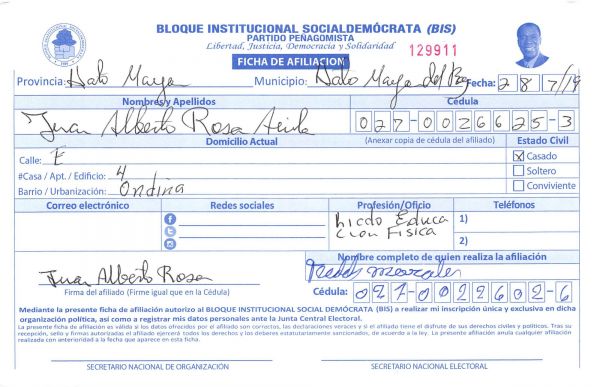 BLOQUE INSTITUCIONAL SOCIALDEMÓCRATA (BIS)
PARTIDO PEÑAGOMISTA
Libertad, Justicia, Democracia y Solidaridad
129911
FICHA DE AFILIACION
Provincia: Hato Mayor Municipio: Hato Mayor del Rey Fecha: 28/7/19
Nombres y Apellidos Cédula
Juan Alberto Rosa 027-0026625-3
Domicilio Actual (Anexar copia de cédula del afiliado) Estado Civil
Calle: E X Casado
#Casa / Apt. / Edificio: 4 Soltero
Barrio / Urbanización: Ondina Conviviente
Correo electrónico Redes sociales Profesión/Oficio Teléfonos
Licdo Educa 1)
cion Fisica 2)
Nombre completo de quien realiza la afiliación
Juan Alberto Rosa Morales
Firma del afiliado (Firme igual que en la Cédula) Cédula: 027-0022602-6
Mediante la presente ficha de afiliación autorizo al BLOQUE INSTITUCIONAL SOCIAL DEMÓCRATA (BIS) a realizar mi inscripción única y exclusiva en dicha
organización política, así como a registrar mis datos personales ante la Junta Central Electoral.
La presente ficha de afiliación es válida si los datos ofrecidos por el afiliado son correctos, las declaraciones veraces y si el afiliado tiene el disfrute de sus derechos civiles y políticos. Tras su
recepción, sello y firmas autorizadas el afiliado ejercerá todos los derechos y los deberes estatutariamente sancionados, de acuerdo a la ley. La presente afiliación anula cualquier afiliación
realizada con anterioridad a la fecha que aparece en esta ficha.
SECRETARIO NACIONAL DE ORGANIZACIÓN SECRETARIO NACIONAL ELECTORAL